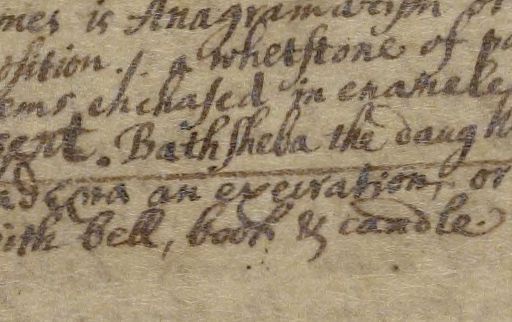 mes is Anagramatism or
osition. / a whetstone of pa
ems enchased in enamele
sent. Bathsheba the daugh
an execration, or
ith bell, book & candle.